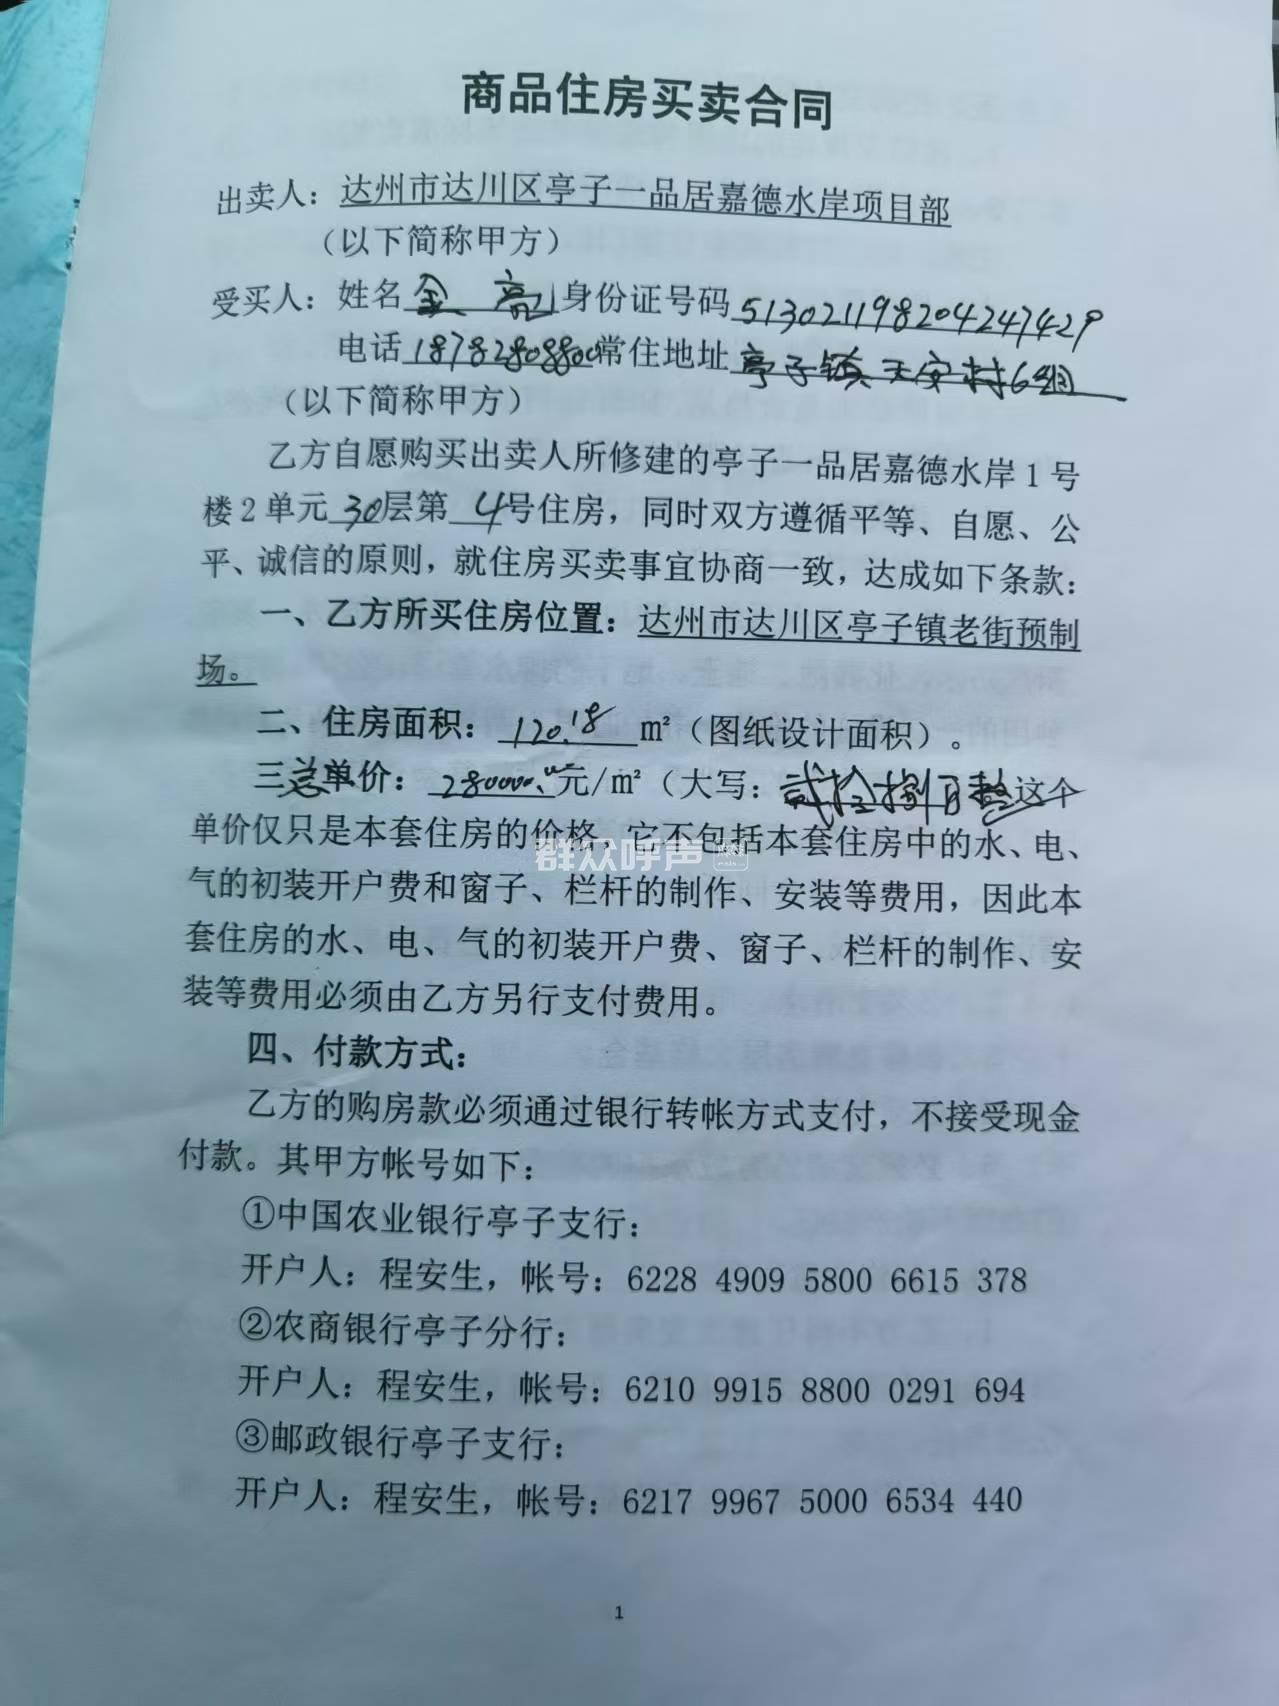 商品住房买卖合同
出卖人：达州市达川区亭子一品居嘉德水岸项目部
（以下简称甲方）
受买人：姓名金 亮身份证号码513021198204247429
电话18782808800常住地址亭子镇天安村6组
（以下简称甲方）
乙方自愿购买出卖人所修建的亭子一品居嘉德水岸1号
楼2单元30层第4号住房，同时双方遵循平等、自愿、公
平、诚信的原则，就住房买卖事宜协商一致，达成如下条款：
一、乙方所买住房位置：达州市达川区亭子镇老街预制
场。
二、住房面积：120.18m²（图纸设计面积）。
三总单价：280000.00元/m²（大写：贰拾捌 整这个
单价仅只是本套住房的价格，它不包括本套住房中的水、电、
群众呼声
气的初装开户费和窗子、栏杆的制作、安装等费用，因此本
套住房的水、电、气的初装开户费、窗子、栏杆的制作、安
装等费用必须由乙方另行支付费用。
四、付款方式：
乙方的购房款必须通过银行转帐方式支付，不接受现金
付款。其甲方帐号如下：
①中国农业银行亭子支行：
开户人：程安生，帐号：6228 4909 5800 6615 378
②农商银行亭子分行：
开户人：程安生，帐号：6210 9915 8800 0291 694
③邮政银行亭子支行：
开户人：程安生，帐号：6217 9967 5000 6534 440
1